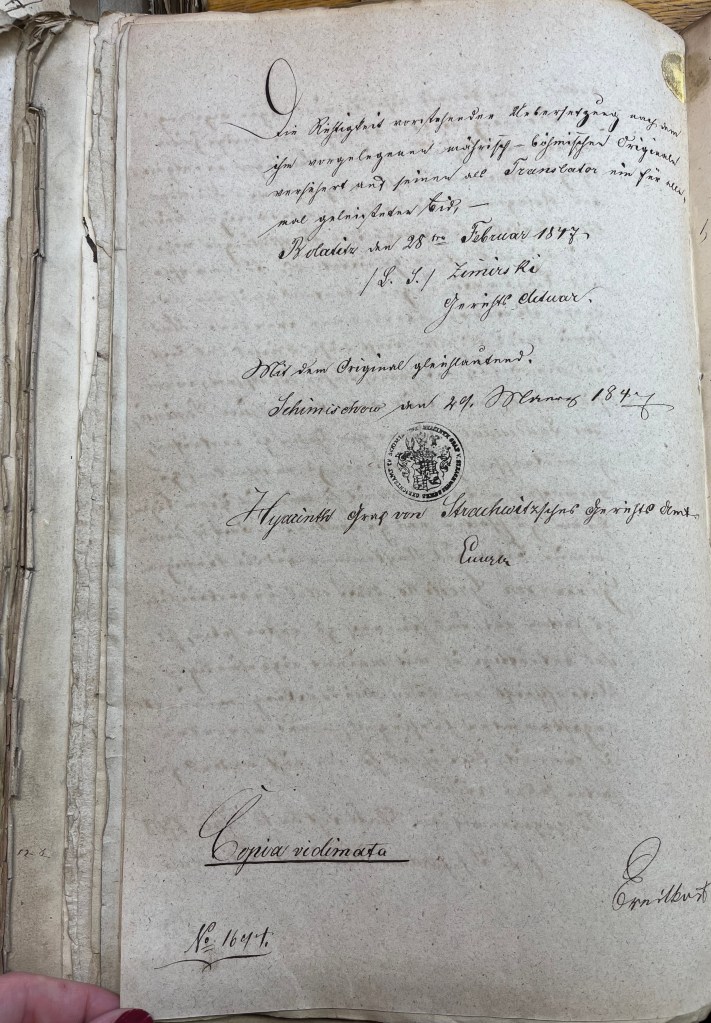 Die Richtigkeit vorstehender Uebersetzung nach dem
ihm vorgelegenen mährisch-böhmischen Originale
versichert auf seinen als Translator ein für alle-
mal geleisteten Eid, —
Bolatitz den 28ten Februar 1847.
/L. S./ Zimirski
Gerichts Actuar.
Mit dem Original gleichlautend.
Schimischow den 29. Maerz 1847
Hyacinth Graf von Strachwitzsches Gerichts Amt
Copia vidimata
No. 1647.